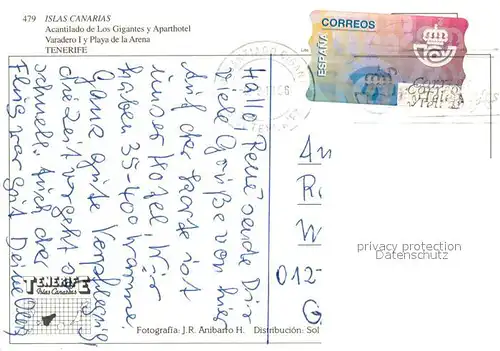 479 ISLAS CANARIAS
Acantilado de Los Gigantes y Aparthotel
Varadero I y Playa de la Arena
TENERIFE
CORREOS
ESPAÑA
Hallo, René sende Dir
viele Grüße von hier
Auf der Karte ist
unser Hotel. Wir
haben 35-40 warme.
Ganz gute Verpflegung
die Zeit vergeht so
schnell. Auch der
Flug war gut Deine
An
R
W
012
TENERIFE
Islas Canarias
Fotografía: J.R. Anibarro H. Distribución: Sol
privacy protection
Datenschutz